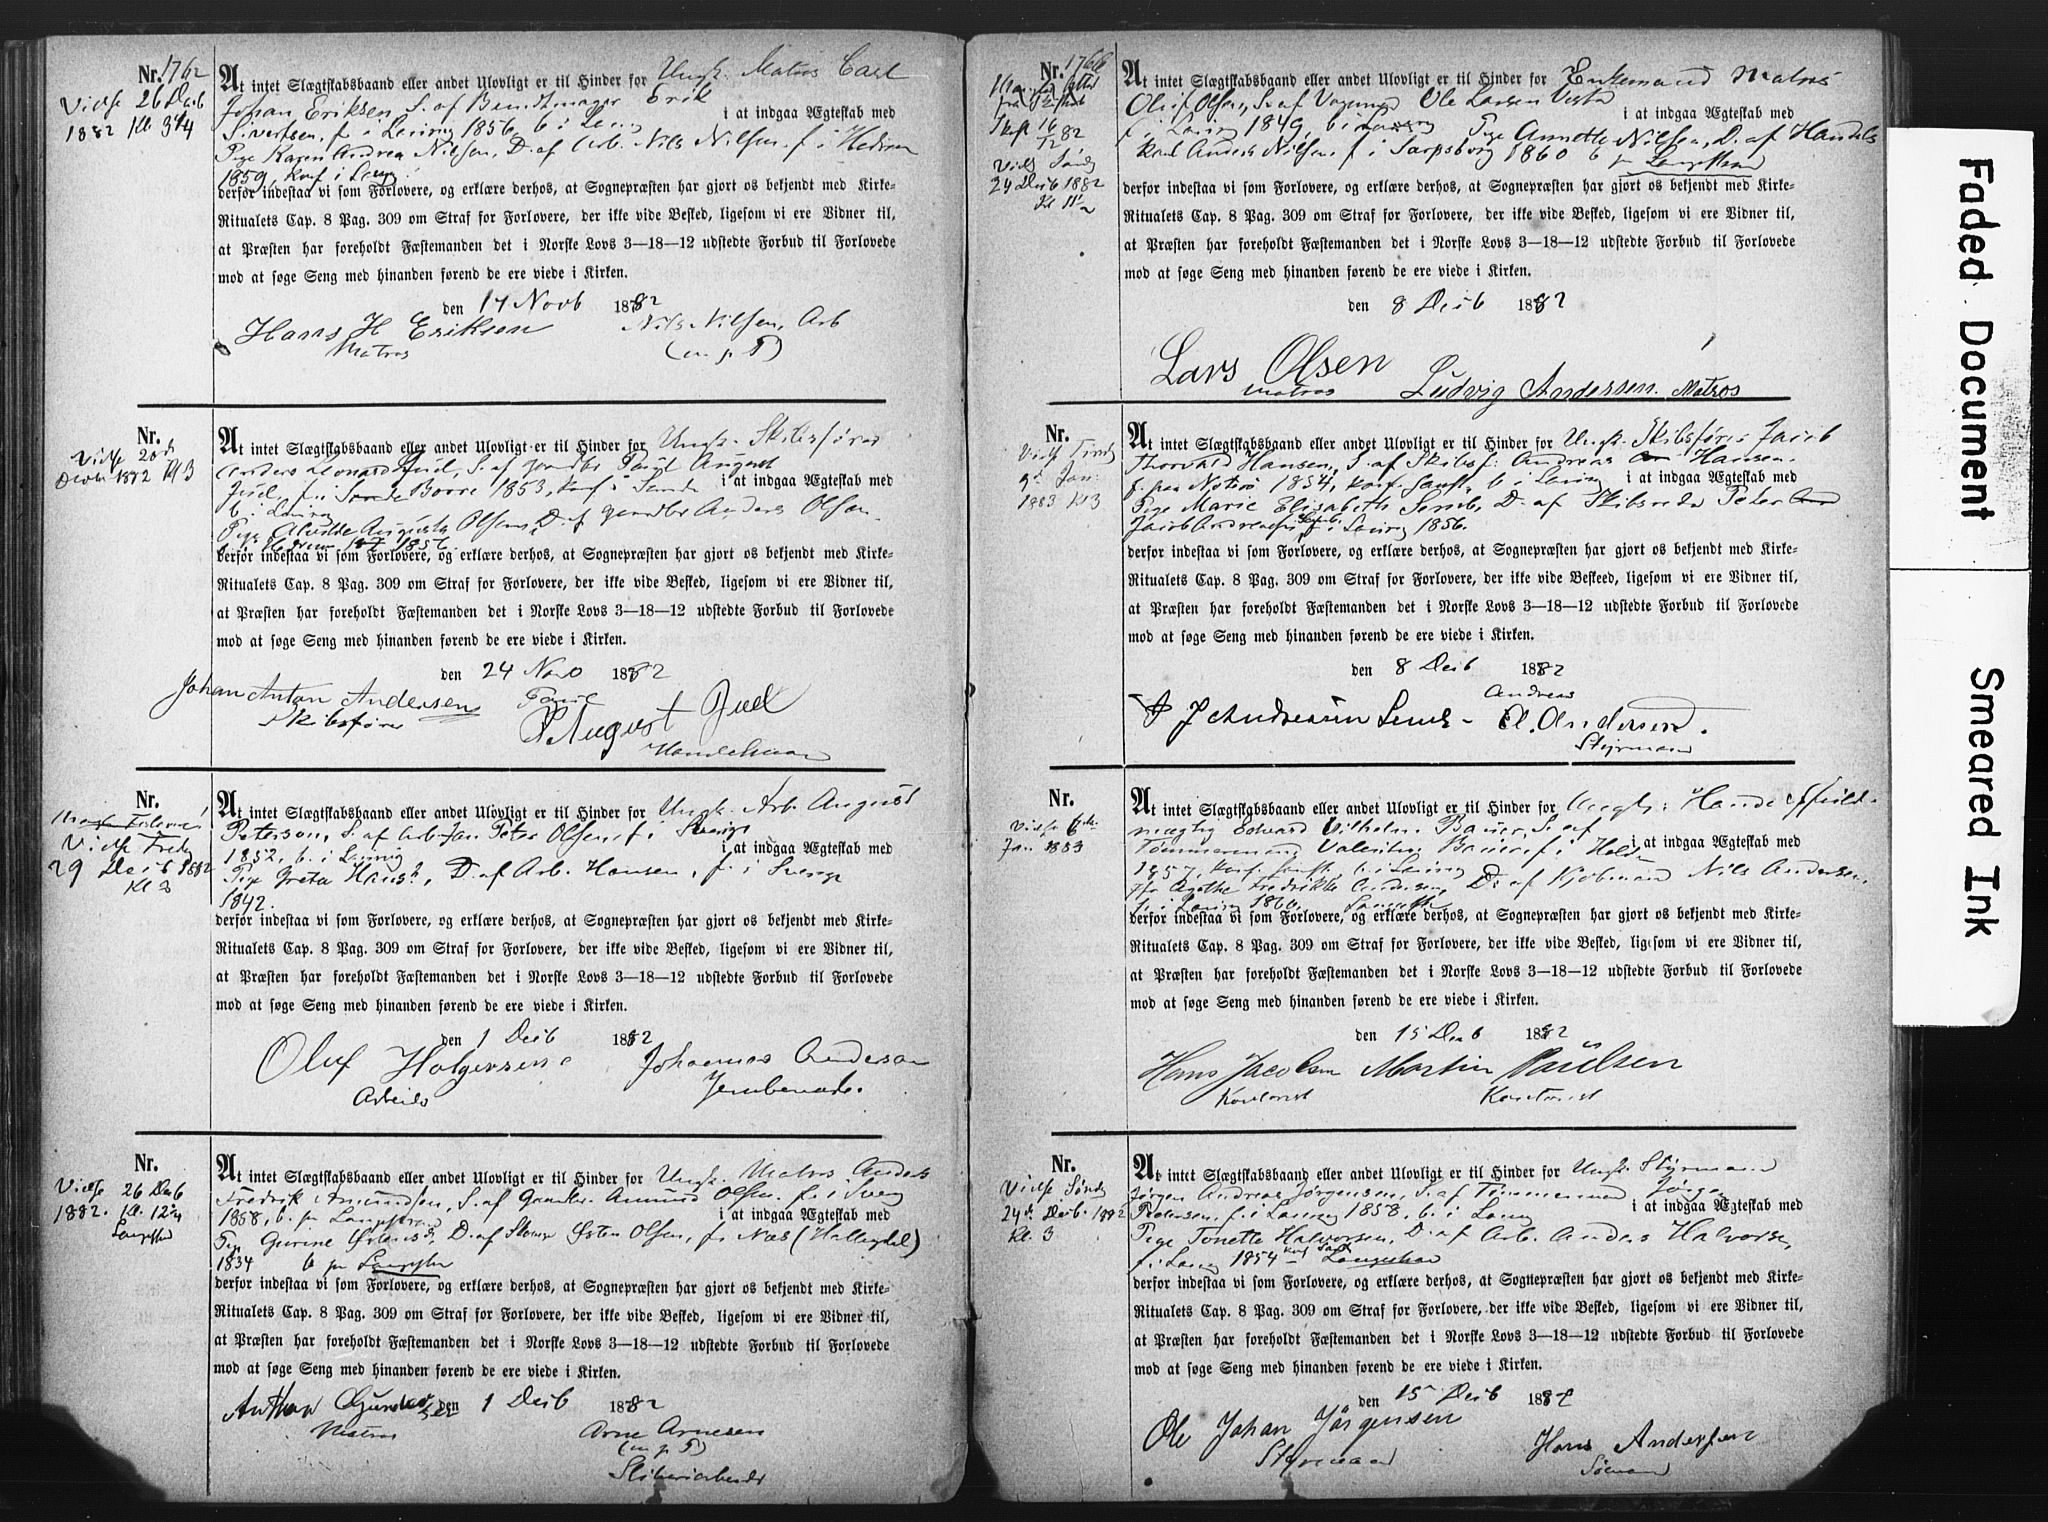 Nr. 1762
Vielse 26 Decb
1882 Kl 3 3/4
At intet Slægtskabsbaand eller andet Ulovligt er til Hinder for Ungk. Matros Carl
Johan Eriksen S. af Bundtmager Erik
i at indgaa Ægteskab med
Sivertsen, f i Larvig 1856, b i Larvig
Pige Karen Andrea Nilsen, D. af Arb. Nils Nilsen f. i Hedrum
1859, konf i Larvig
derfor indestaa vi som Forlovere, og erklære derhos, at Sognepræsten har gjort os bekjendt med Kirke-
Ritualets Cap. 8 Pag. 309 om Straf for Forlovere, der ikke vide Besked, ligesom vi ere Vidner til,
at Præsten har foreholdt Fæstemanden det i Norske Lovs 3—18—12 udstedte Forbud til Forlovede
mod at søge Seng med hinanden førend de ere viede i Kirken.
den 17 Novb 1882
Hans H Eriksen Nils Nilsen, Arb
Matros (m. p. P)
Nr.
Vielse 20de
1882 Kl 3
At intet Slægtskabsbaand eller andet Ulovligt er til Hinder for Ungk. Skibsfører
Anders Leonard Juel, S. af Gaardbr Paul August
i at indgaa Ægteskab med
Juel, f. i Borre 1853, konf i Sande
b i Larvig
Pige Augusta Olsen, D. af Gaardbr Anders Olsen
Hedrum 1856
derfor indestaa vi som Forlovere, og erklære derhos, at Sognepræsten har gjort os bekjendt med Kirke-
Ritualets Cap. 8 Pag. 309 om Straf for Forlovere, der ikke vide Besked, ligesom vi ere Vidner til,
at Præsten har foreholdt Fæstemanden det i Norske Lovs 3—18—12 udstedte Forbud til Forlovede
mod at søge Seng med hinanden førend de ere viede i Kirken.
den 24 Nov 1882
Johan Anton Andersen Paul
Skibsfører P August Juel
Handelsmand
Nr.
Vielse Fredag
29 Decb 1882
Kl 3
At intet Slægtskabsbaand eller andet Ulovligt er til Hinder for Ungk. Arb. August
Peterson, S. af Arb. Jan Peter Olsen, f i Sverige
i at indgaa Ægteskab med
1852, b. i Larvig
Pige Greta Hansd., D. af Arb. Hansen, f. i Sverige
1842.
derfor indestaa vi som Forlovere, og erklære derhos, at Sognepræsten har gjort os bekjendt med Kirke-
Ritualets Cap. 8 Pag. 309 om Straf for Forlovere, der ikke vide Besked, ligesom vi ere Vidner til,
at Præsten har foreholdt Fæstemanden det i Norske Lovs 3—18—12 udstedte Forbud til Forlovede
mod at søge Seng med hinanden førend de ere viede i Kirken.
den 1 Decb 1882
Oluf Holgersen Johannes Anderson
Arbeider
Nr.
Vielse 26 Decb
1882. Kl. 12 3/4
At intet Slægtskabsbaand eller andet Ulovligt er til Hinder for Ungk. Matros Anders
Fredrik Amundsen, S. af Amund Olsen f. i
i at indgaa Ægteskab med
1858, b. pr Langestrand
Pige Gurine Østensd, D. af Østen Olsen, f. Næs (Hallingdal)
1834 b pr Langestr
derfor indestaa vi som Forlovere, og erklære derhos, at Sognepræsten har gjort os bekjendt med Kirke-
Ritualets Cap. 8 Pag. 309 om Straf for Forlovere, der ikke vide Besked, ligesom vi ere Vidner til,
at Præsten har foreholdt Fæstemanden det i Norske Lovs 3—18—12 udstedte Forbud til Forlovede
mod at søge Seng med hinanden førend de ere viede i Kirken.
Anthon Gundersen den 1 Decb 1882
Matros Arne Arnesen
(m. p. P)
Sliberiarbeider
Nr. 1766
Skifte 16/12 82
Viels Sønd
24 Decb 1882
Kl 11 1/2
At intet Slægtskabsbaand eller andet Ulovligt er til Hinder for Enkemand Matros
Oluf Olsen, S. af Vognmd Ole Larsen Vesta
i at indgaa Ægteskab med
f. i Larvig 1849, b i Larvig Pige Annette Nilsen, D. af Handels
Karl Anders Nilsen, f i Sarpsborg 1860 b pr Langestrand
derfor indestaa vi som Forlovere, og erklære derhos, at Sognepræsten har gjort os bekjendt med Kirke-
Ritualets Cap. 8 Pag. 309 om Straf for Forlovere, der ikke vide Besked, ligesom vi ere Vidner til,
at Præsten har foreholdt Fæstemanden det i Norske Lovs 3—18—12 udstedte Forbud til Forlovede
mod at søge Seng med hinanden førend de ere viede i Kirken.
den 8 Decb 1882
Lars Olsen
Matros Ludvig Andersen. Matros
Nr.
Viels Tirsd
9de Jan:
1883 Kl 3
At intet Slægtskabsbaand eller andet Ulovligt er til Hinder for Ungk. Skibsfører Jacob
Thorvald Hansen, S. af Skibsf: Andreas Hansen.
i at indgaa Ægteskab med
f. paa Nøterø 1854, konf. samst, b i Larvig
Pige Marie Elisabeth Semb, D. af Skibsreder Peter
Jacob Andreasen Semb, f i Larvig 1856.
derfor indestaa vi som Forlovere, og erklære derhos, at Sognepræsten har gjort os bekjendt med Kirke-
Ritualets Cap. 8 Pag. 309 om Straf for Forlovere, der ikke vide Beskeed, ligesom vi ere Vidner til,
at Præsten har foreholdt Fæstemanden det i Norske Lovs 3—18—12 udstedte Forbud til Forlovede
mod at søge Seng med hinanden førend de ere viede i Kirken.
den 8 Decb 1882
Andreas
P J Andreasen Semb A. Andersen.
Styrmand
Nr.
Vielse 6te
Jan 1883
At intet Slægtskabsbaand eller andet Ulovligt er til Hinder for Ungk: Handelsfuld-
mægtig Edvard Vilhelm Bauer, S. af
i at indgaa Ægteskab med
Tømmermand Valentin Bauer f i
1857, konf. samst, b. i Larvig
Agathe Fredrikke Andersen, D. af Kjøbmand Nils Andersen,
f. i Larvig 1860.
derfor indestaa vi som Forlovere, og erklære derhos, at Sognepræsten har gjort os bekjendt med Kirke-
Ritualets Cap. 8 Pag. 309 om Straf for Forlovere, der ikke vide Besked, ligesom vi ere Vidner til,
at Præsten har foreholdt Fæstemanden det i Norske Lovs 3—18—12 udstedte Forbud til Forlovede
mod at søge Seng med hinanden førend de ere viede i Kirken.
den 15 Decb 1882
Hans Jacobsen Martin Paulsen
Kontorist Kontorist
Nr.
Vielse Sønd
24de Decb. 1882
Kl. 3
At intet Slægtskabsbaand eller andet Ulovligt er til Hinder for Ungk. Styrmand
Jørgen Andreas Jørgensen, S. af Tømmermand Jørgen
i at indgaa Ægteskab med
Pedersen, f. i Larvig 1858, b. i Larvig
Pige Tonette Halvorsen, D. af Arb. Anders Halvorsen,
f. i Larvig 1854 konf Langestrand
derfor indestaa vi som Forlovere, og erklære derhos, at Sognepræsten har gjort os bekjendt med Kirke-
Ritualets Cap. 8 Pag. 309 om Straf for Forlovere, der ikke vide Besked, ligesom vi ere Vidner til,
at Præsten har foreholdt Fæstemanden det i Norske Lovs 3—18—12 udstedte Forbud til Forlovede
mod at søge Seng med hinanden førend de ere viede i Kirken.
den 15 Decb 1882
Ole Johan Jørgensen Hans Andersen
Styrmand Sømand
Faded Document
Smeared Ink